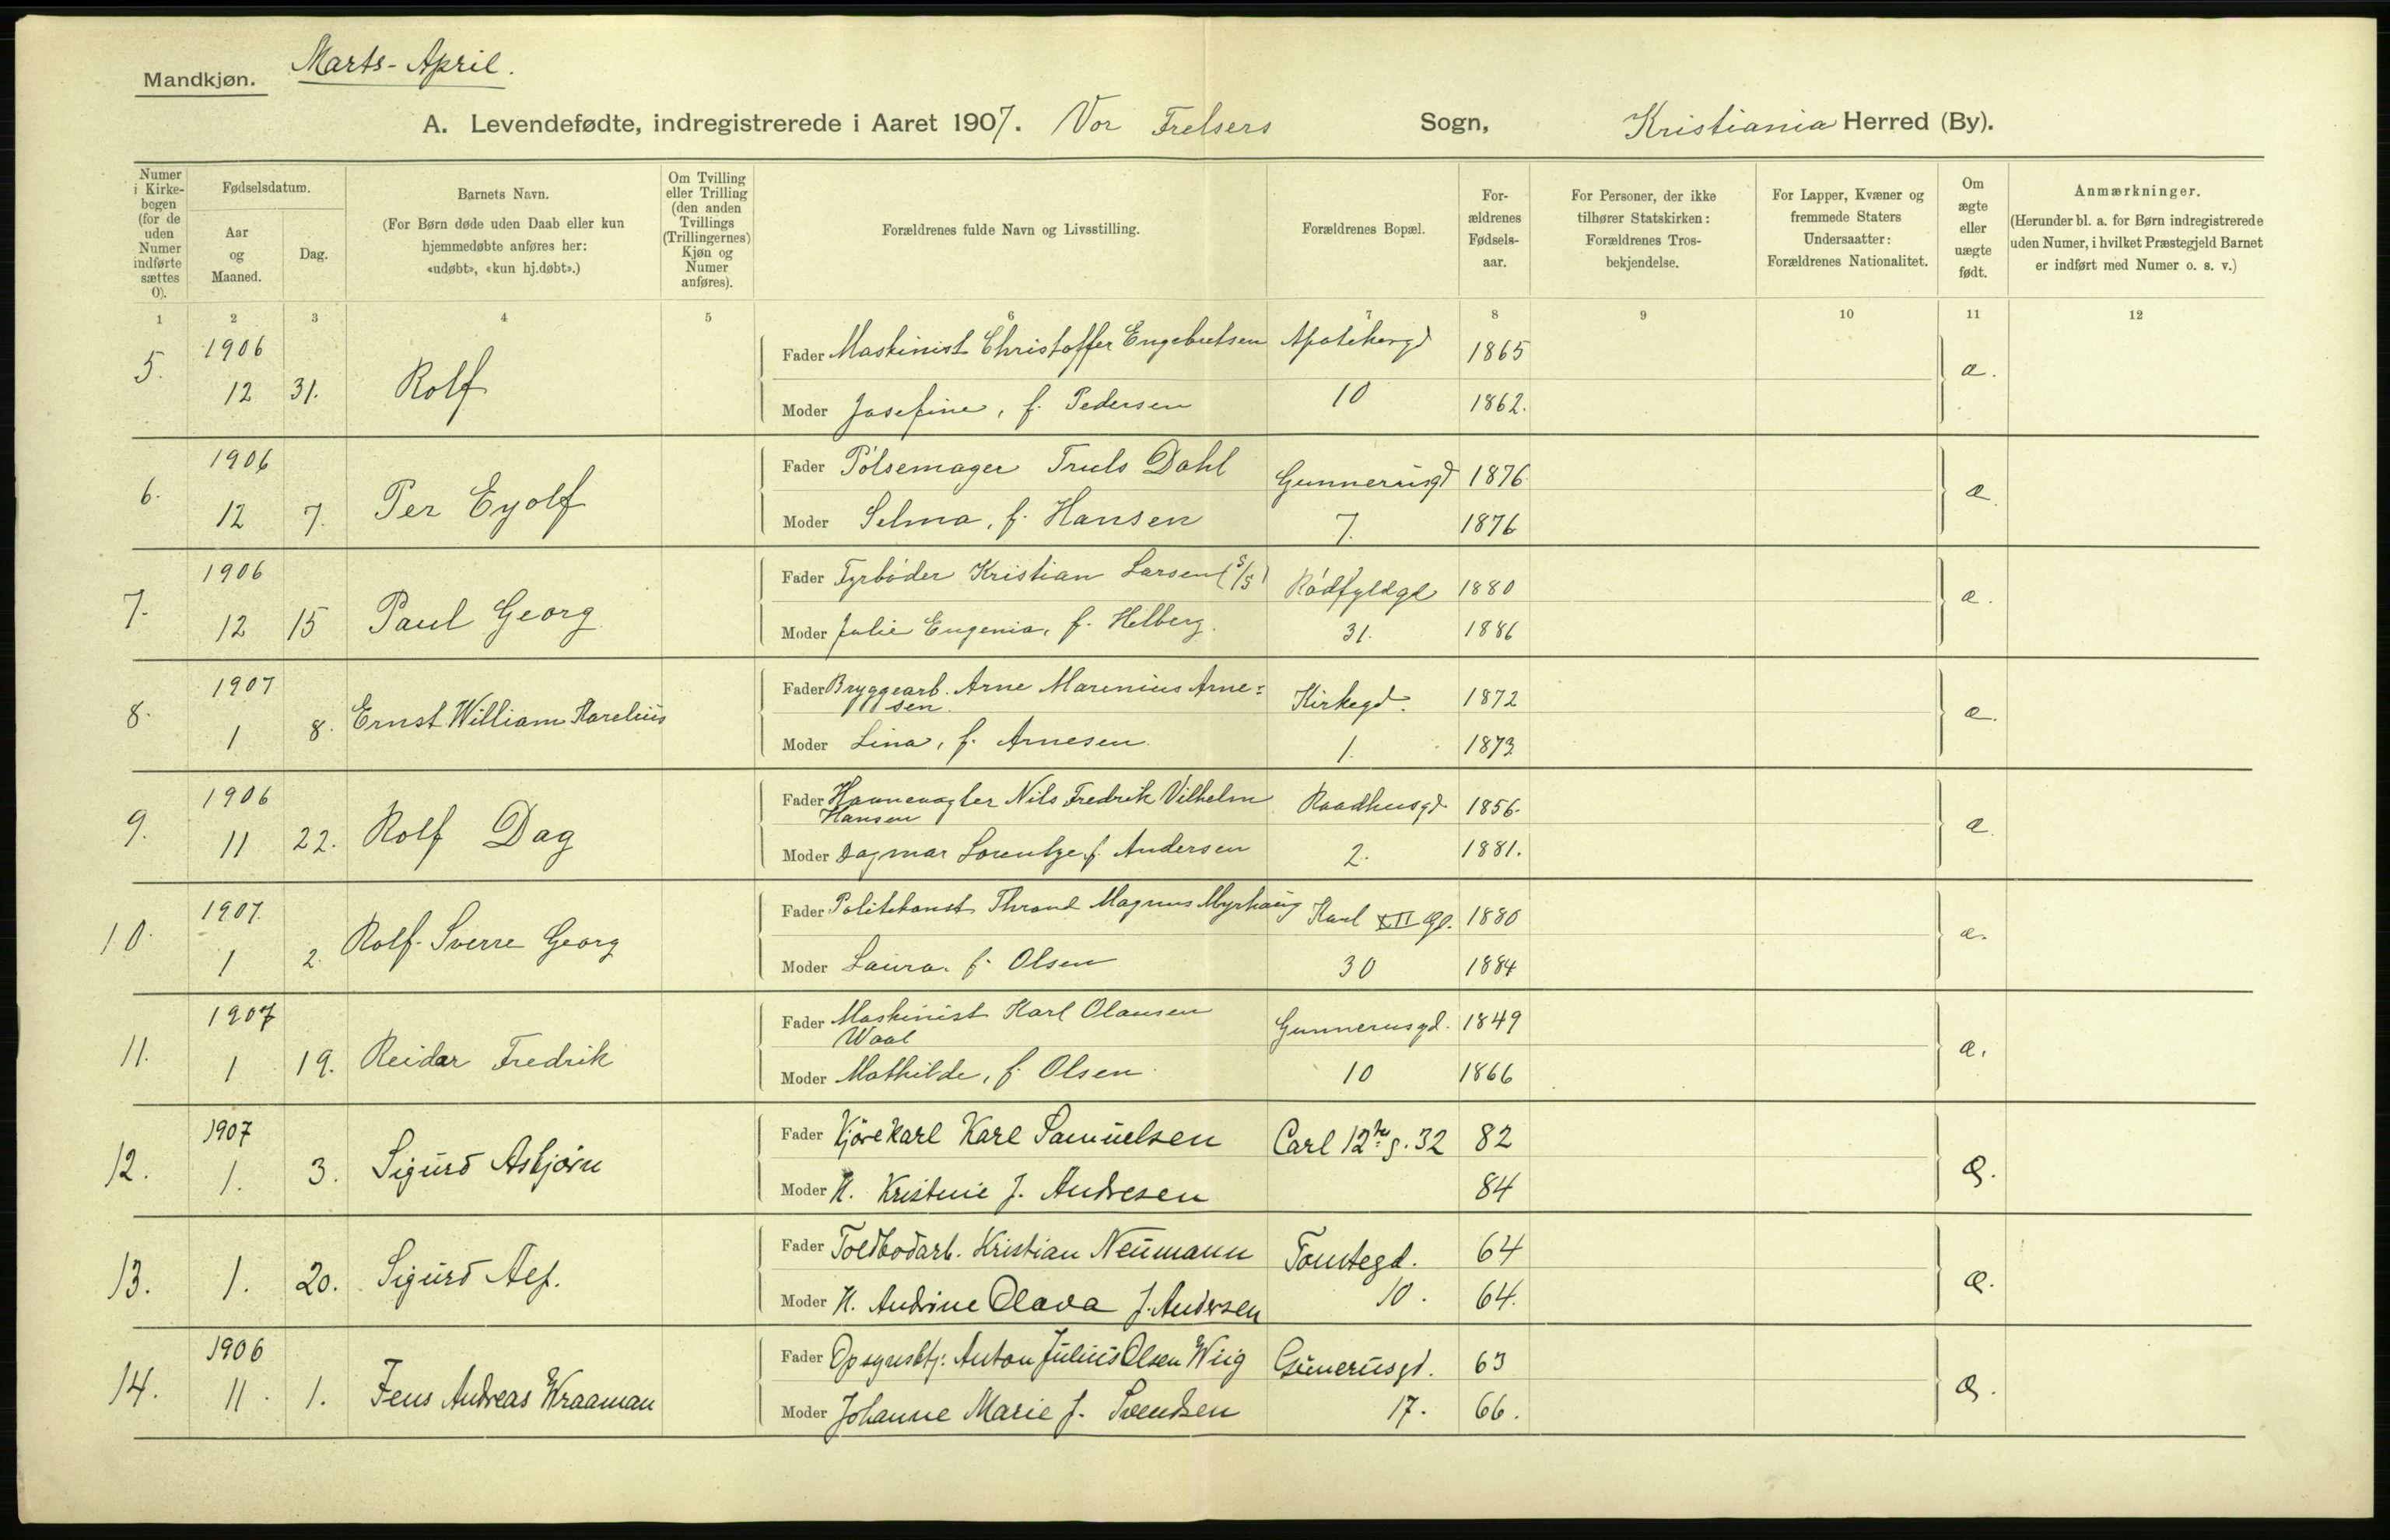 Mandkjøn. Marts-April.
A. Levendefødte, indregistrerede i Aaret 1907. Vor Frelsers Sogn, Kristiania Herred (By).
Numer i Kirke-bogen (for de uden Numer indførte sættes 0).
Fødselsdatum.
Aar og Maaned.
Dag.
Barnets Navn.
(For Børn døde uden Daab eller kun hjemmedøbte anføres her: «udøbt», «kun hj.døbt».)
Om Tvilling eller Trilling (den anden Tvillings (Trillingernes) Kjøn og Numer anføres).
Forældrenes fulde Navn og Livsstilling.
Forældrenes Bopæl.
For-ældrenes Fødsels-aar.
For Personer, der ikke tilhører Statskirken: Forældrenes Tros-bekjendelse.
For Lapper, Kvæner og fremmede Staters Undersaatter: Forældrenes Nationalitet.
Om ægte eller uægte født.
Anmærkninger.
(Herunder bl. a. for Børn indregistrerede uden Numer, i hvilket Præstegjeld Barnet er indført med Numer o. s. v.)
1 2 3 4 5 6 7 8 9 10 11 12
5. 1906 12 31. Rolf
Fader Maskinist Christoffer Engebretsen Apothekergd 1865 æ.
Moder Josefine, f. Pedersen 10 1862.
6. 1906 12 7. Per Eyolf
Fader Pölsemager Truls Dahl Gunnerusgd 1876 æ.
Moder Selma, f. Hansen 7. 1876
7. 1906 12 15 Paul Georg
Fader Fyrböder Kristian Larsen (S/S) Rödfyldgd 1880 æ.
Moder Julie Eugenia, f. Helberg. 31. 1886
8. 1907 1 8. Ernst William Karelius
Fader Bryggearb. Arne Marenius Arne=
sen. Kirkegd. 1872 æ.
Moder Lina, f. Arnesen. 1. 1873
9. 1906 11 22. Rolf Dag
Fader Havnevogter Nils Fredrik Vilhelm
Hansen Raadhusgd 1856. æ.
Moder Dagmar Lorentze f. Andersen 2. 1881.
10. 1907. 1 2. Rolf Sverre Georg
Fader Politikonst. Thrond Magnus Myrhaug Karl XII Gd. 1880 æ.
Moder Laura. f. Olsen 30 1884
11. 1907 1 19. Reidar Fredrik
Fader Maskinist Karl Olausen
Waal Gunnerusgd. 1849 æ.
Moder Mathilde, f. Olsen. 10 1866
12. 1907 1. 3. Sigurd Asbjörn
Fader Kjörekarl Karl Samuelsen Carl 12te g. 32 82 Æ.
Moder H. Kristine f. Andresen 84
13. 1. 20. Sigurd Alf.
Fader Toldbodarb. Kristian Neumann Tomtegd. 64 Æ.
Moder H. Andrine Olava f. Andersen 10. 64.
14. 1906 11. 1. Jens Andreas Wraaman
Fader Opsynsbtj. Anton Julius Olsen Wiig Gunerusgd. 63 Æ.
Moder Johanne Marie f. Svendsen 17. 66.